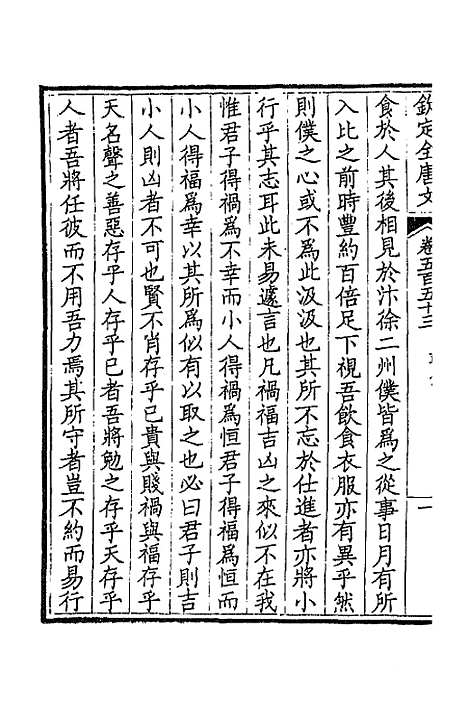 欽定全唐文 卷五百五十三
食於人其後相見於汴徐二州僕皆爲之從事日月有所
入比之前時豐約百倍足下視吾飲食衣服亦有異乎然
則僕之心或不爲此汲汲也其所不忘於仕進者亦將小
行乎其志耳此未易遽言也凡禍福吉凶之來似不在我
惟君子得禍爲不幸而小人得禍爲恒君子得福爲恒而
小人得福爲幸以其所爲似有以取之也必曰君子則吉
小人則凶者不可也賢不肖存乎已貴與賤禍與福存乎
天名聲之善惡存乎人存乎已者吾將勉之存乎天存乎
人者吾將任彼而不用吾力焉其所守者豈不約而易行